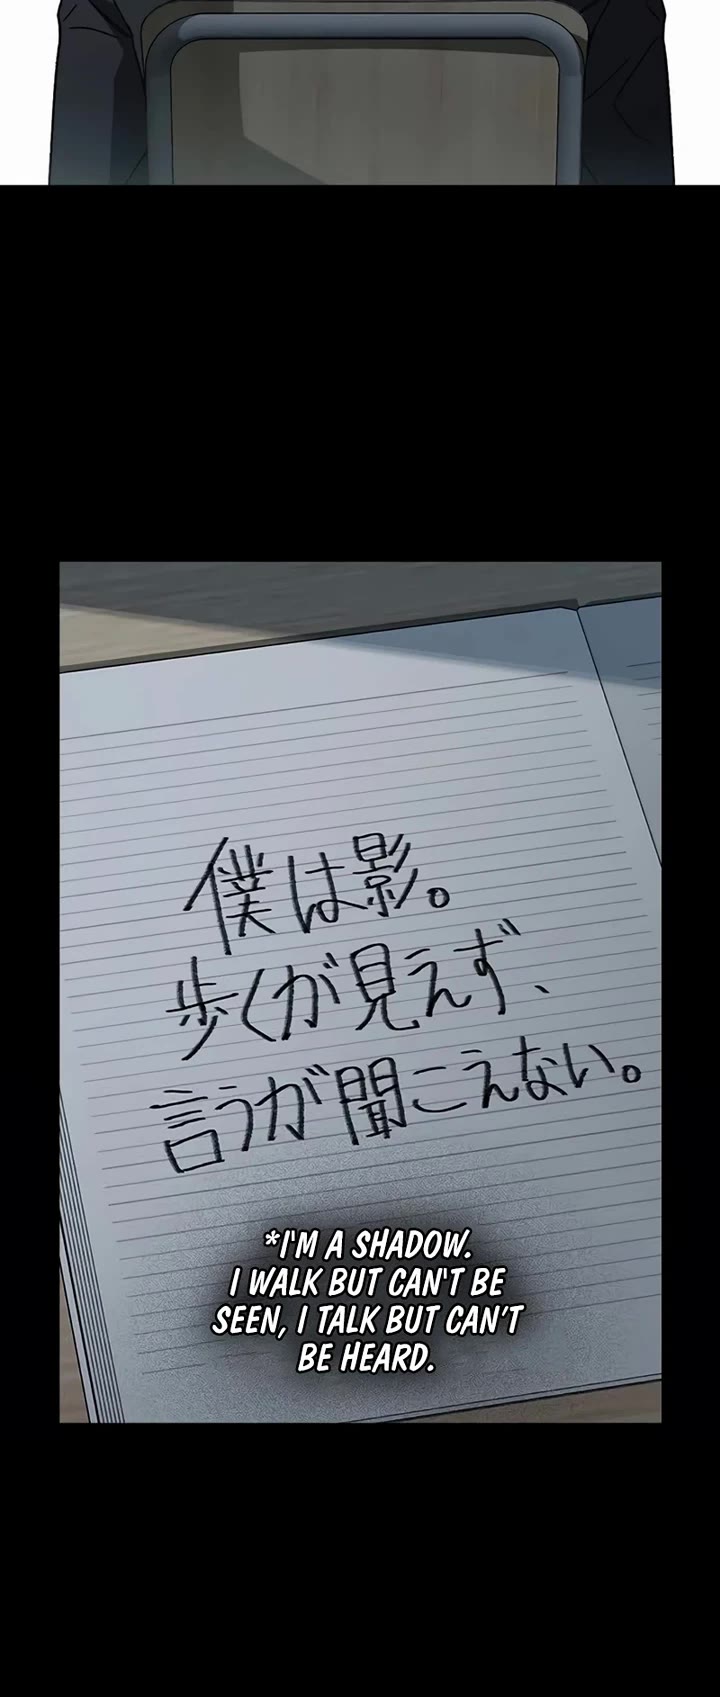 僕は影。
歩くが見えず、
言うが聞こえない。
*I'M A SHADOW.
I WALK BUT CAN'T BE
SEEN, I TALK BUT CAN'T
BE HEARD.